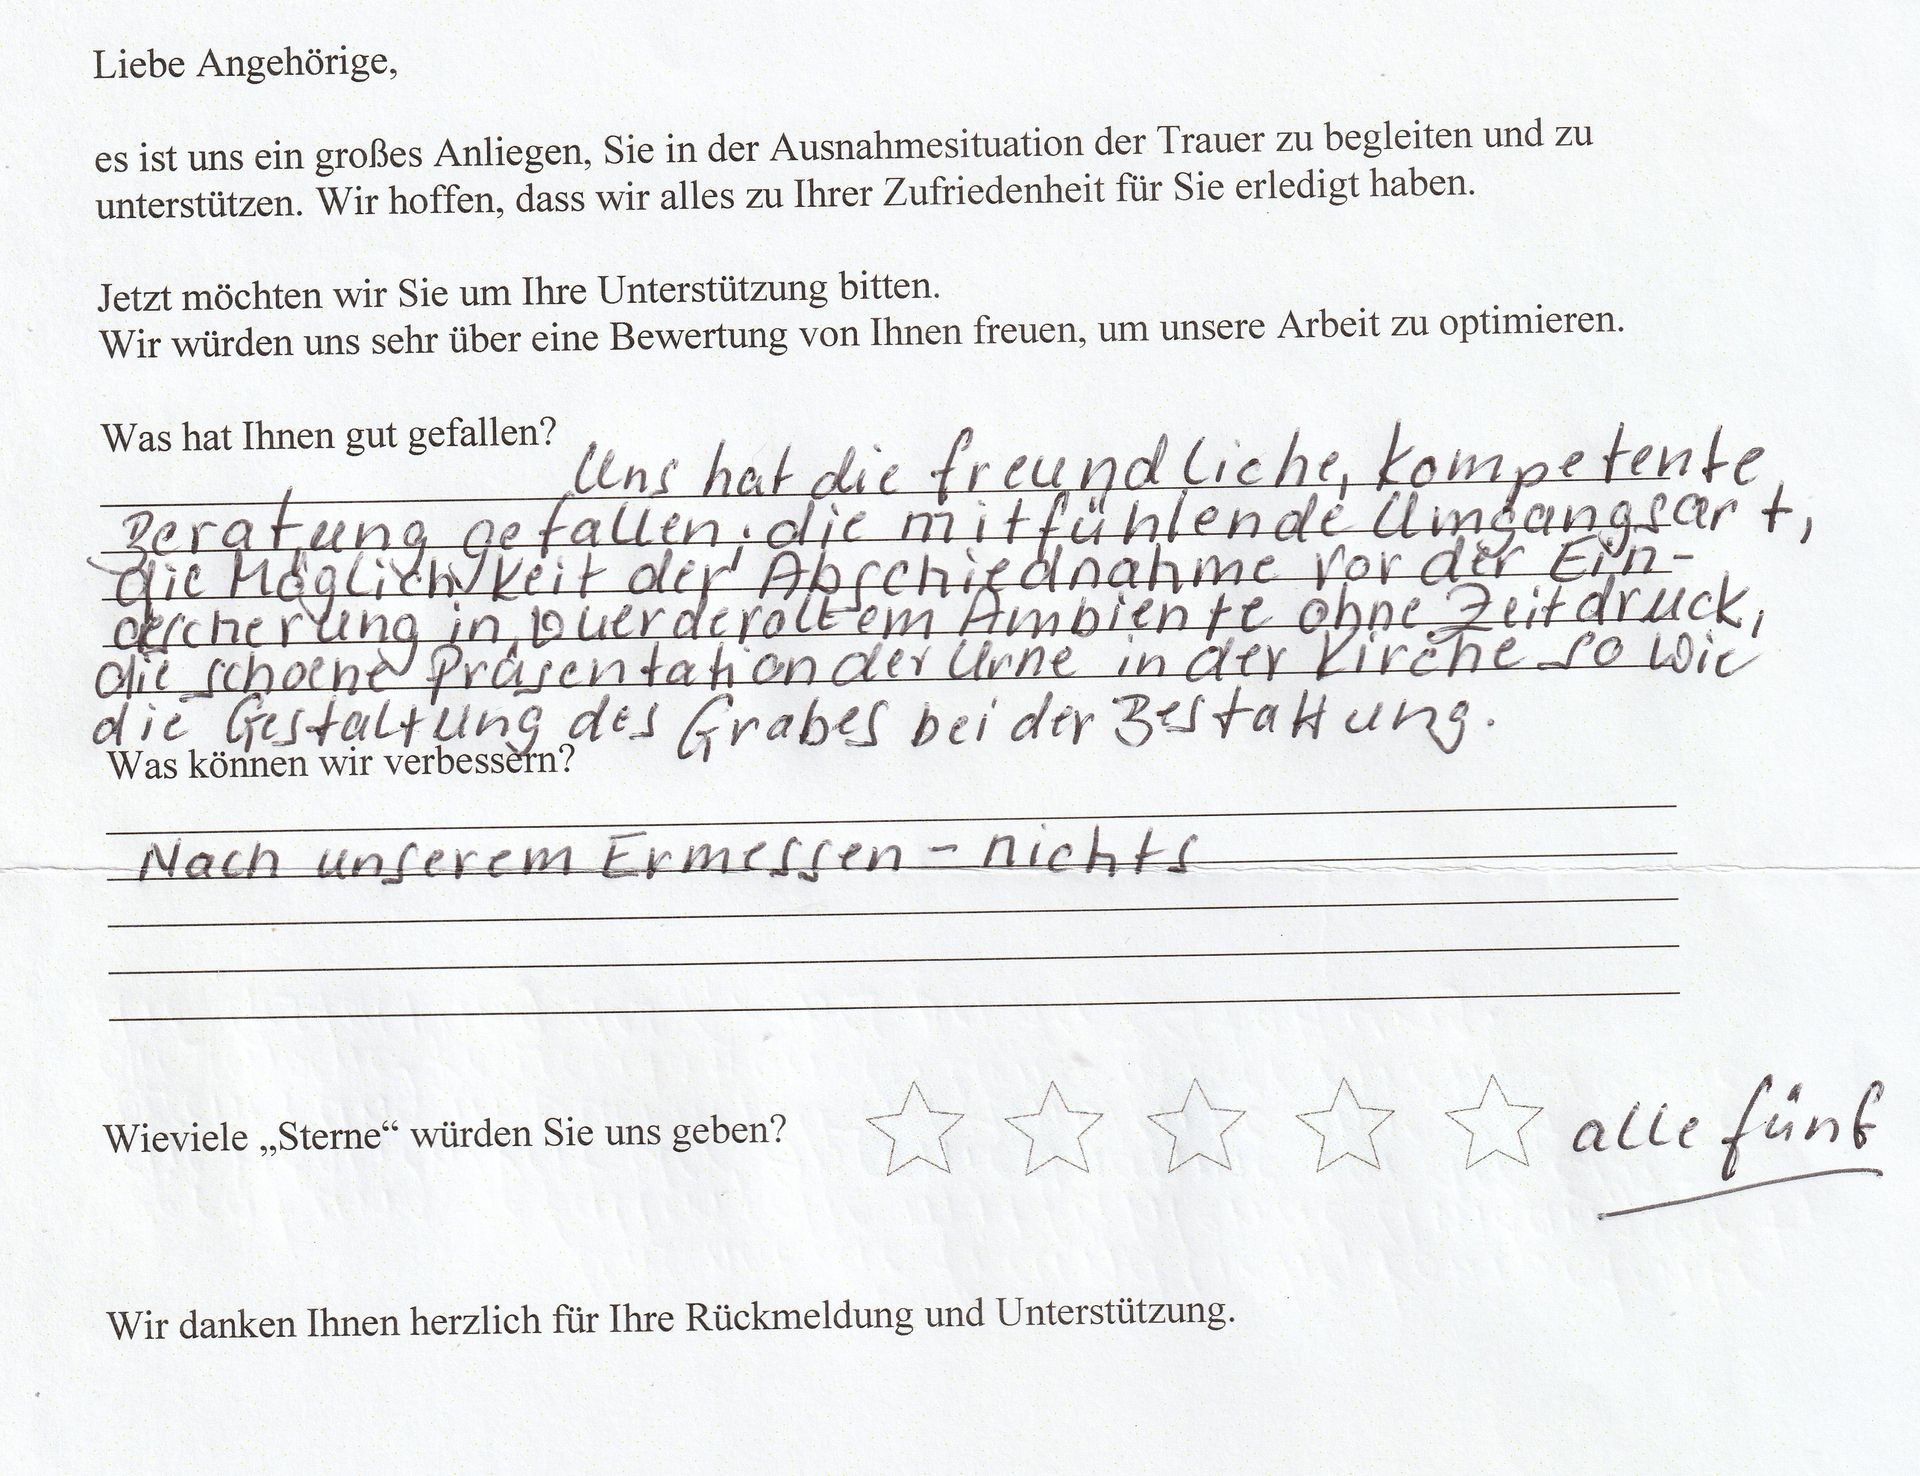 Liebe Angehörige,
es ist uns ein großes Anliegen, Sie in der Ausnahmesituation der Trauer zu begleiten und zu
unterstützen. Wir hoffen, dass wir alles zu Ihrer Zufriedenheit für Sie erledigt haben.
Jetzt möchten wir Sie um Ihre Unterstützung bitten.
Wir würden uns sehr über eine Bewertung von Ihnen freuen, um unsere Arbeit zu optimieren.
Was hat Ihnen gut gefallen?
Uns hat die freundliche, kompetente
Beratung gefallen, die mitfühlende Umgangsart,
die Möglichkeit der Abschiednahme vor der Ein-
äscherung in Ambiente ohne Zeitdruck,
die schoene Präsentation der Urne in der Kirche so wie
die Gestaltung des Grabes bei der Bestattung.
Was können wir verbessern?
Nach unserem Ermessen - nichts
Wieviele „Sterne“ würden Sie uns geben?
alle fünf
Wir danken Ihnen herzlich für Ihre Rückmeldung und Unterstützung.